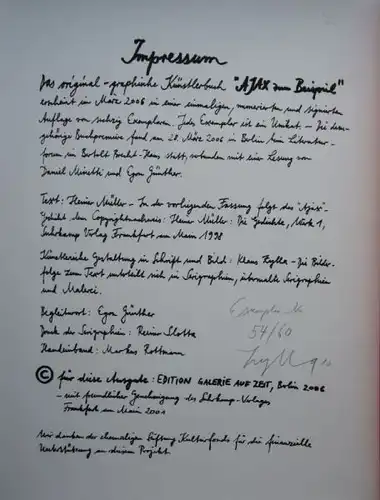 Impressum
Das original-graphische Künstlerbuch "AJAX zum Beispiel"
erscheint im März 2006 in einer einmaligen, numerierten und signierten
Auflage von sechzig Exemplaren. Jedes Exemplar ist ein Unikat. – Die dazu-
gehörige Buchpremiere fand am 28. März 2006 in Berlin im Literatur-
forum im Bertolt Brecht-Haus statt, verbunden mit einer Lesung von
Daniel Minetti und Egon Günther.
Text: Heiner Müller – In der vorliegenden Fassung folgt das "Ajax"-
Gedicht dem Copyrightnachweis: Heiner Müller: Die Gedichte, Werke 1,
Suhrkamp Verlag Frankfurt am Main 1998
Künstlerische Gestaltung in Schrift und Bild: Klaus Zylla – Die Bilder-
folge zum Text unterteilt sich in Serigraphien, übermalte Serigraphien
und Malerei.
Begleitwort: Egon Günther
Druck der Serigraphien: Reiner Slotta
Handeinband: Markus Rottmann
Exemplar Nr.
54/60
Zylla
© für diese Ausgabe: EDITION GALERIE AUF ZEIT, Berlin 2006
– mit freundlicher Genehmigung des Suhrkamp-Verlages
Frankfurt am Main 2001
Wir danken der ehemaligen Stiftung Kulturfonds für die finanzielle
Unterstützung an diesem Projekt.